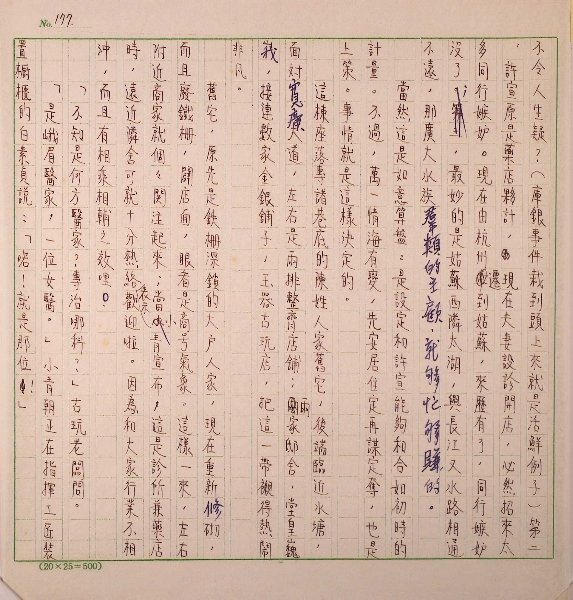 No. 177
不令人生疑?(庫銀事件栽到頭上來就是活鮮例子)第二
,許宣原是藥店夥計,現在夫妻設診開店,必然招來太
多同行嫉妒。現在由杭州遷到姑蘇,來歷有了,同行嫉妒
沒了;最妙的是姑蘇西隣太湖,與長江又水路相通
不遠,那廣大水族羣類的主顧,就够忙够賺的。
當然這是如意算盤;是設定和許宣能夠和合如初時的
計量。不過,萬一情海有變,先安居住定再謀定奪,也是
上策。事情就是這樣決定的。
這棟座落專諸巷底的陳姓人家舊宅,後端臨近水塘,
面對寬廣大道,左右是兩排整齊店鋪;兩家邸舍,堂皇巍
峩,接連數家金銀鋪子,玉器古玩店,把這一帶襯得熱鬧
非凡。
舊宅,原先是鉄柵深鎖的大户人家,現在重新修砌,
而且廢鐵柵,闢店面,眼看是商号氣象。這樣一來,左右
附近商家就個々関注起來;當小青宣布,這是診所兼藥店
時,遠近隣舍可就十分熱絡歡迎啦。因為和大家行業不相
沖,而且有相乘相輔之效哩。
「不知是何方醫家?專治哪科?」古玩老闆問。
「是峨眉醫家,一位女醫。」小青朝正在指揮工匠裝
置櫥櫃的白素貞說:「喏!就是那位!」
(20×25=500)